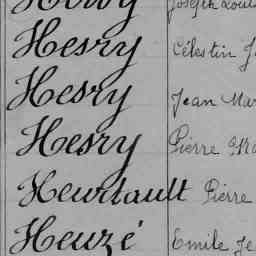 Joseph Louis
Hesry Célestin J
Hesry Jean Mar
Hesry Pierre Ma
Heurtault Pierre
Heuzé Emile Je